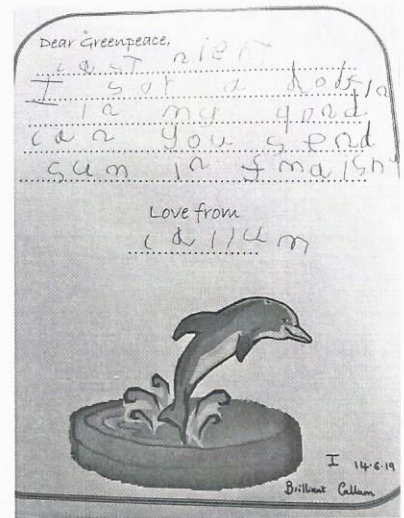 Dear Greenpeace,
last night
I sor a dolfin
in my pond
can you send
sum in fmaishn
Love from
callum
I 14.6.19
Brilliant Callum